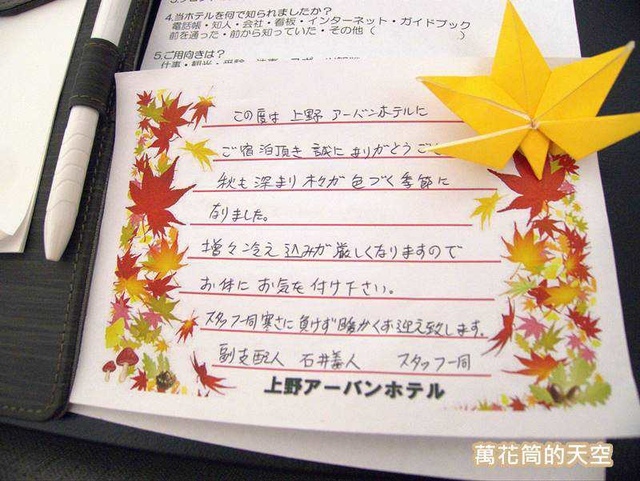 4.当ホテルを何で知られましたか？
電話帳・知人・会社・看板・インターネット・ガイドブック
前を通った・前から知っていた・その他（　　　　　　　）
5.ご用向きは？
この度は 上野 アーバンホテルに
ご宿泊頂き 誠に ありがとう ござ
秋も深まり 木々が 色づく季節に
なりました。
増々冷え 込みが 厳しくなりますので
お体に お気を付け下さい。
スタッフ一同寒さに負けず暖かくお迎え致します。
副支配人 石井善人 スタッフ一同
上野アーバンホテル
萬花筒的天空